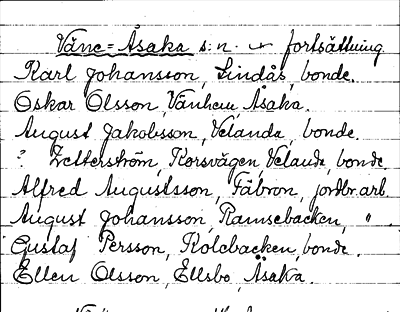 Väne-Åsaka s:n. fortsättning.
Karl Johansson, Lindås, bonde.
Oskar Olsson, Vänhem Åsaka.
August Jakobsson, Velanda, bonde.
? Zetterström, Korsvägen, Velanda, bonde
Alfred Augustsson, Fäbron, jordbr.arb.
August Johansson, Ramsebacken, " .
Gustaf Persson, Kolobacken, bonde.
Ellen Olsson, Ellsbo, Åsaka.